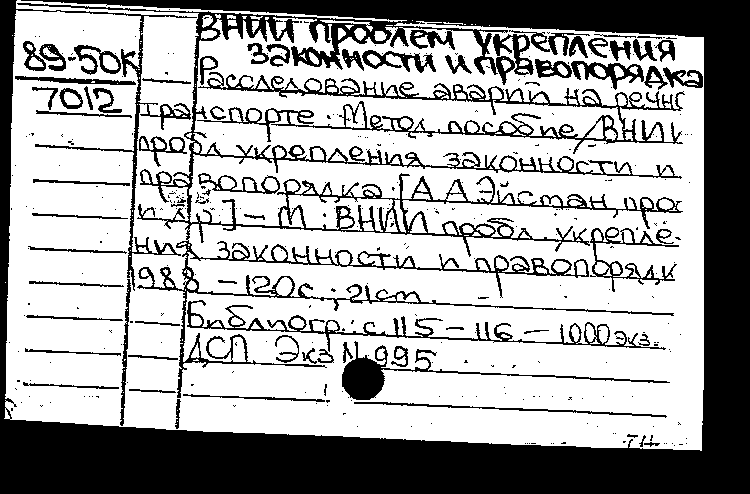 ВНИИ проблем укрепления
законности и правопорядка
89-50К
7012
Расследование аварий на речно
транспорте : Метод. пособие / ВНИИ
пробл. укрепления законности и
правопорядка; [А.А. Эйсман, про
и др.] – М. : ВНИИ пробл. укрепле-
ния законности и правопорядк
1988 – 120с. ; 21см.
Библиогр.: с. 115 – 116. – 1000 экз.
ДСП. Экз N 995